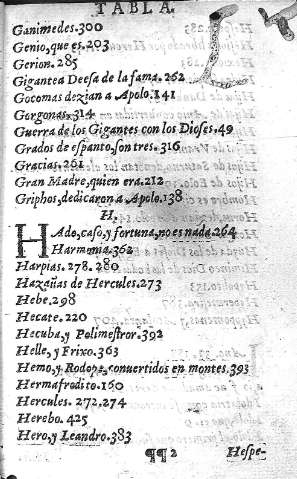 TABLA.
Ganimedes.300
Genio, que es.203
Gerion.285
Gigantea Deesa de la fama.262
Gocomas dezian a Apolo.141
Gorgonas.314
Guerra de los Gigantes con los Dioses.49
Grados de espanto, son tres.316
Gracias.261
Gran Madre, quien era.212
Griphos, dedicaron a Apolo.138
H.
HAdo, caso, y fortuna, no es nada.264
Harmonia.362
Harpias.278.280
Hazañas de Hercules.273
Hebe.298
Hecate.220
Hecuba, y Polimestror.392
Helle, y Frixo.363
Hemo, y Rodope, conuertidos en montes.393
Hermafrodito.160
Hercules.272.274
Herebo.425
Hero, y Leandro.383
¶¶2 Hespe-